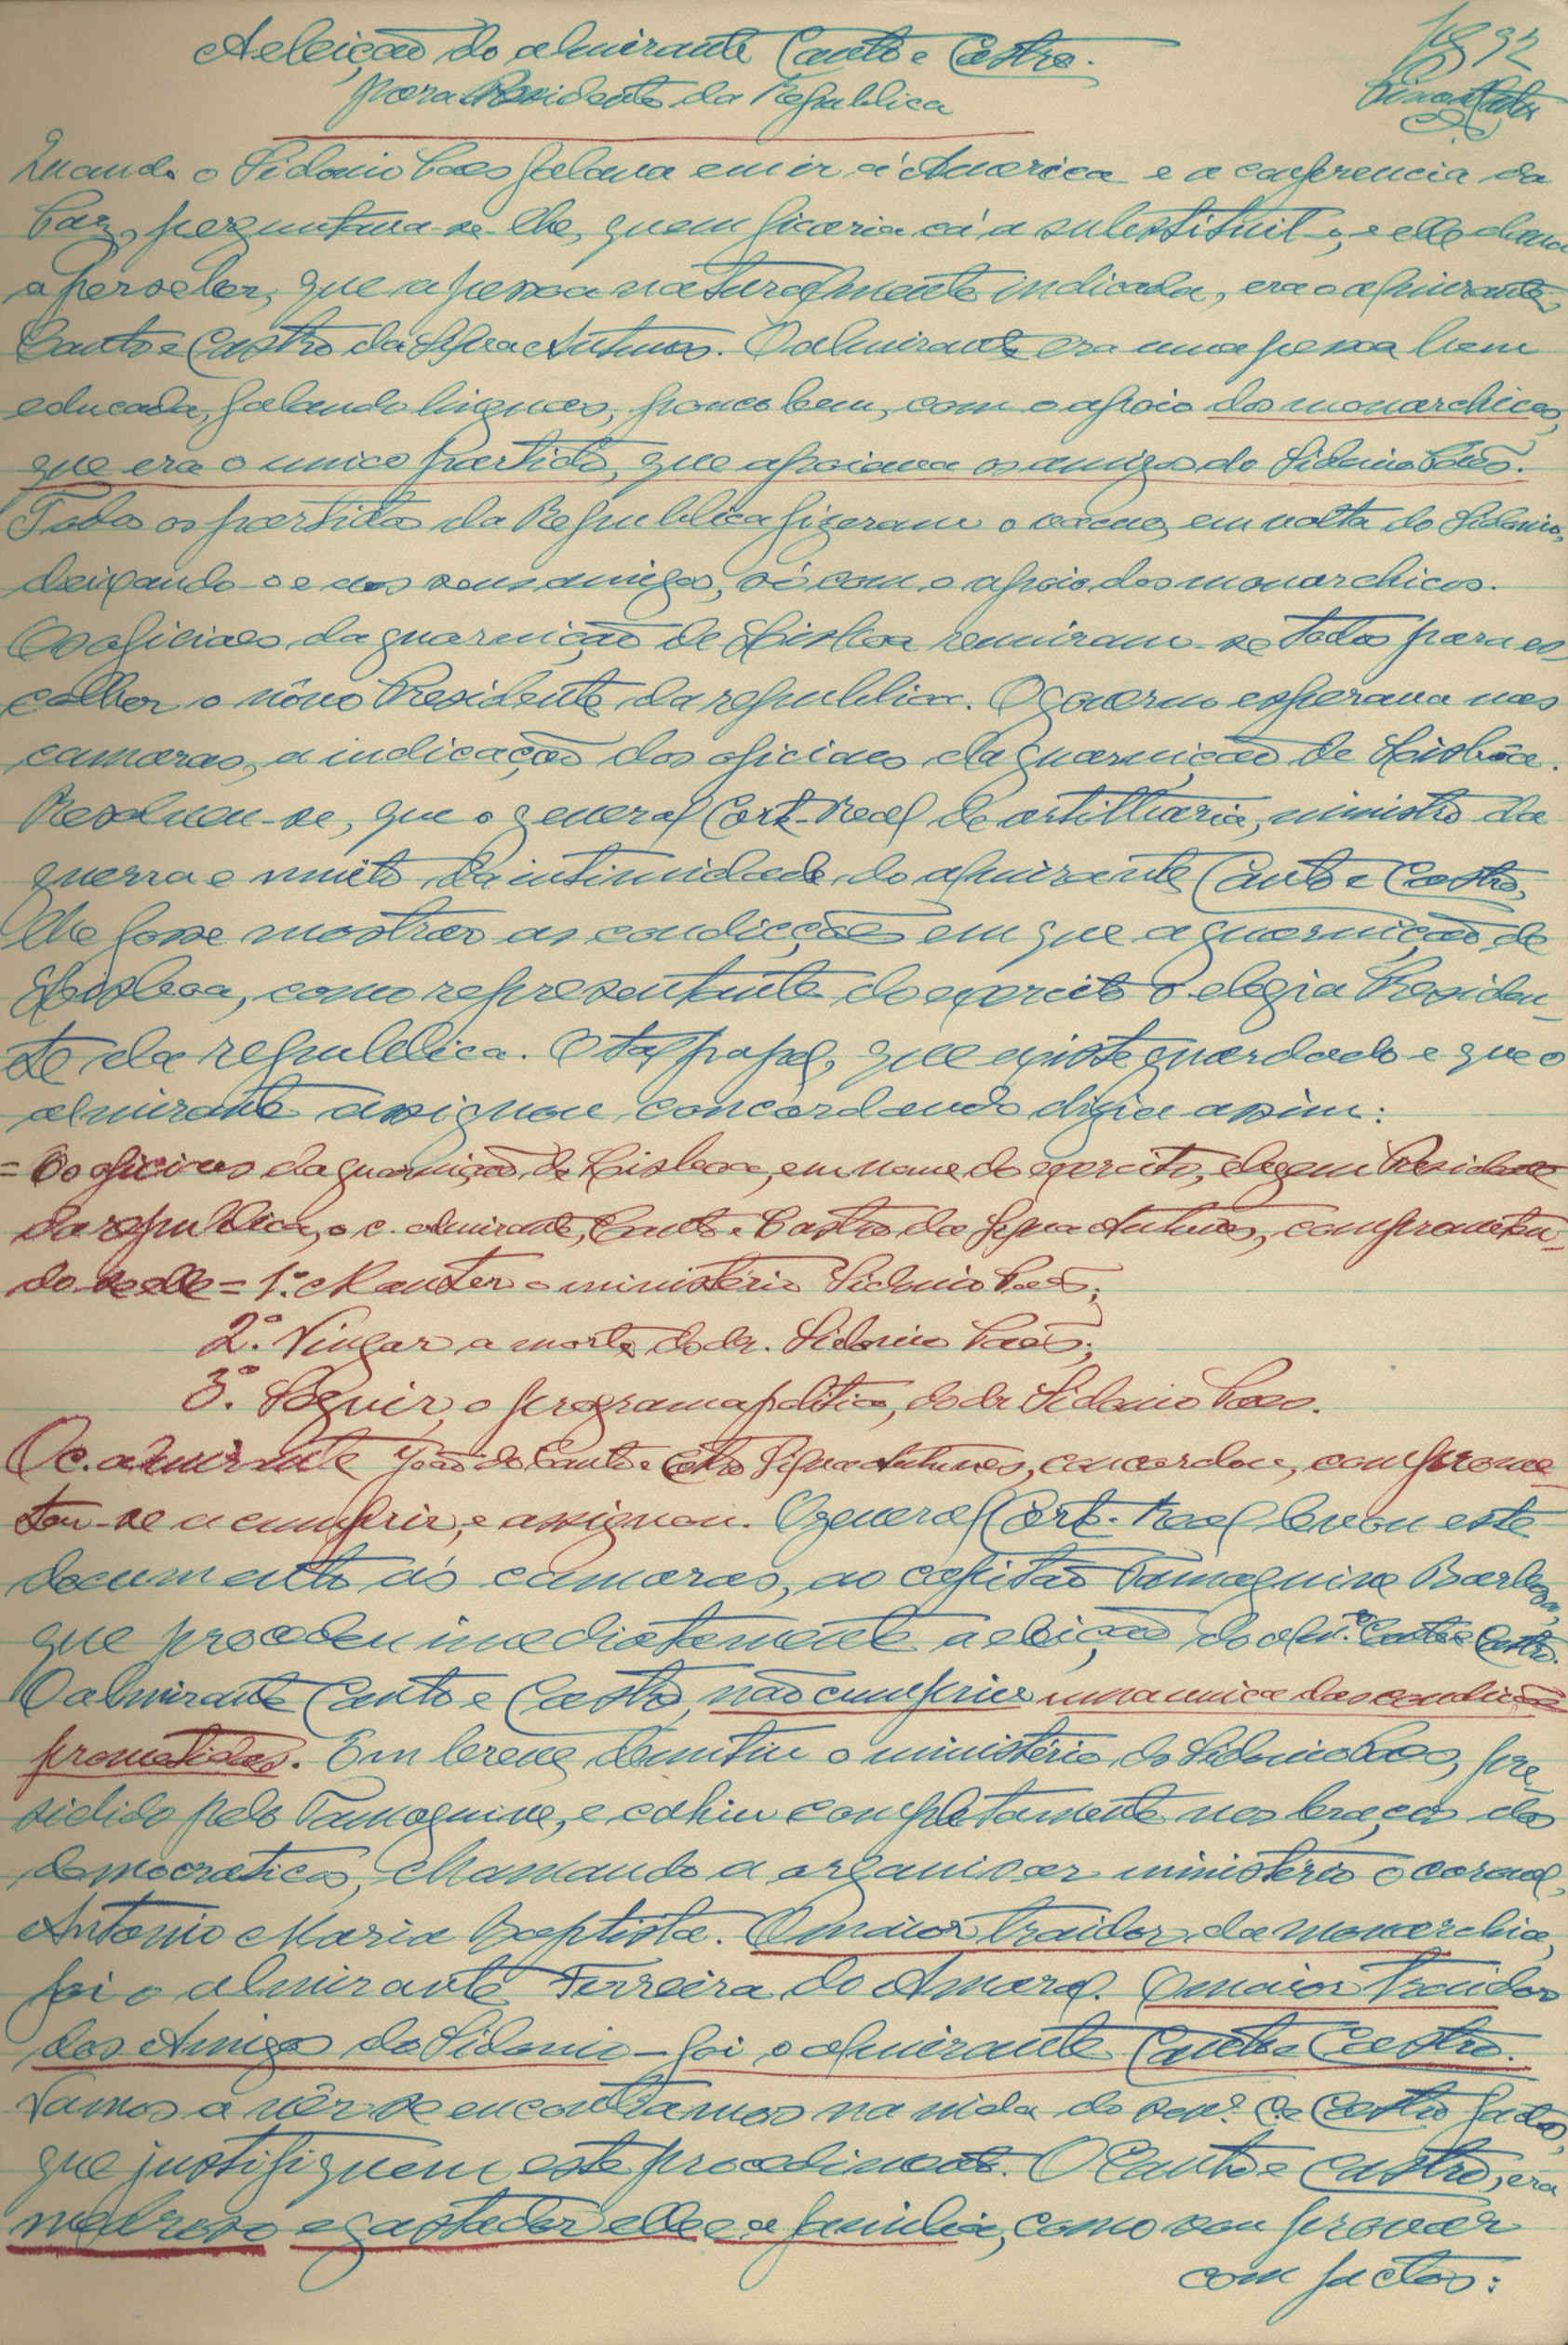 A eleição do almirante Canto e Castro.
para Presidente da Republica
1892
Quando o Sidonio Paes falava em ir á America e a conferencia da
Paz, perguntava-se-lhe, quem ficaria cá a substituil-o, e elle dava
a perseber, que a pessoa naturalmente indicada, era o almirante
Canto e Castro da Silva Antunes. O almirante era uma pessoa bem
educada, falando linguas, pouco bem, com o apoio dos monarchicos,
que era o unico partido, que apoiava os amigos do Sidonio Paes.
Todos os partidos da Republica fizeram o vacuo, em volta do Sidonio,
deixando-o e aos seus amigos, só com o apoio dos monarchicos.
Os oficiaes da guarnição de Lisboa reuniram-se todos para es-
colher o nôvo Presidente da republica. O governo esperava nas
camaras, a indicação dos oficiaes da guarnição de Lisbôa.
Resolveu-se, que o general Cort-Real de artilharia, ministro da
guerra e muito da intimidade do almirante Canto e Castro,
lhe fosse mostrar as condicções em que a guarnição de
Lisboa, como representante do exercito o elegia Presiden-
te da republica. O tal papel, que existe guardado e que o
almirante assignou concordando dizia assim:
= Os oficiaes da guarnição de Lisboa, em nome do exercito, elegem Presidente
da republica, o c. almirante, Canto e Castro da Silva Antunes, comprometen-
do-se elle = 1.º Manter o ministério Sidonio Paes;
2.º Vingar a morte do dr. Sidonio Paes;
3.º Seguir o programa politico, do dr. Sidonio Paes.
O c. almirante João do Canto e Castro Silva Antunes, concordou, comprome-
teu-se a cumprir, e assignou. O general Cort-Real levou este
documento ás camaras, ao capitão Tamagnine Barbosa,
que procedeu imediatamente a eleição do alm.e Canto e Castro.
O almirante Canto e Castro, não cumpriu uma unica das condições
prometidas. Em breve, demitiu o ministério do Sidonio Paes, pre-
sidido pelo Tamagnine, e cahiu completamente nos braços dos
democraticos, chamando a organisar ministério o coronel,
Antonio Maria Baptista. O maior traidor da monarchia,
foi o almirante Ferreira do Amaral. O maior traidor
dos Amigos do Sidonio - foi o almirante Canto e Castro.
Vamos a vêr se encontramos na vida do senr. C. e Castro factos,
que justifiquem este procedimento. O Canto e Castro, era
medroso e gastador elle e a familia, como vou provar
com factos: